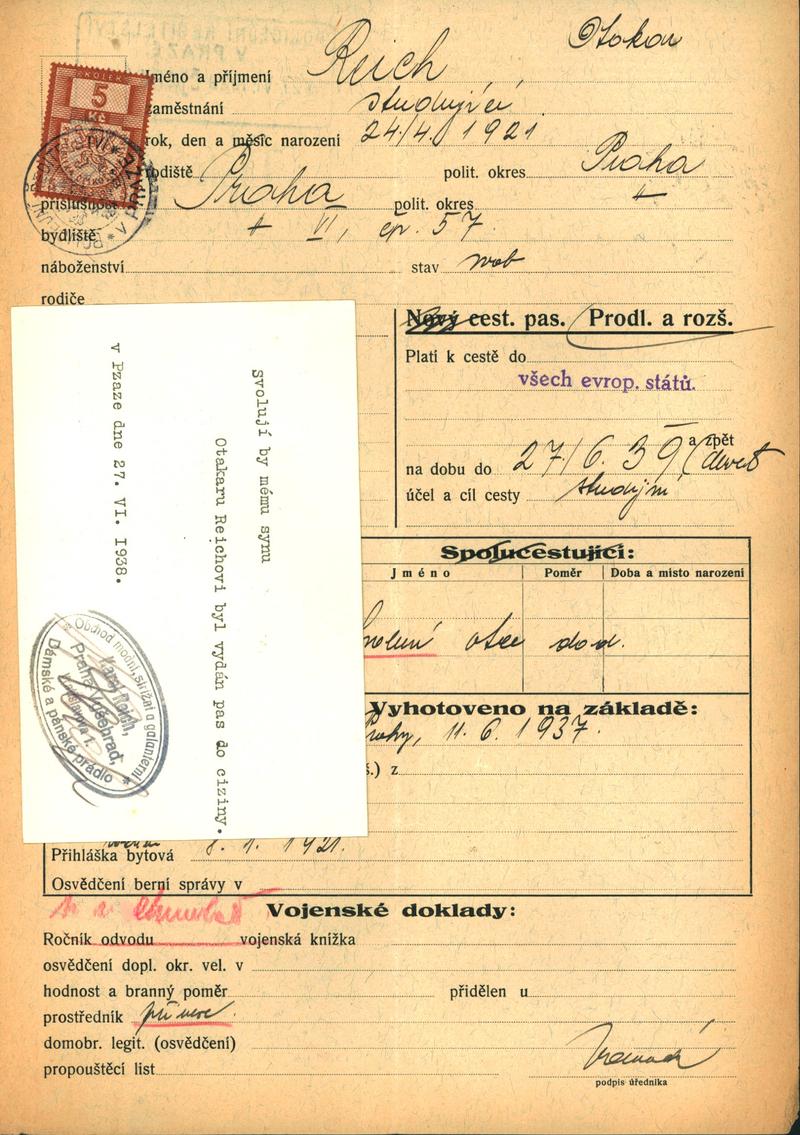 Otokar
Jméno a příjmení Reich
KOLEK
5
Kč
zaměstnání studující
rok, den a měsíc narození 24/4. 1921
rodiště Praha polit. okres Praha
příslušnost polit. okres
bydliště VI, čp. 57
náboženství stav svob
rodiče
Nový cest. pas. Prodl. a rozš.
Platí k cestě do
všech evrop. států.
a zpět
na dobu do 27/6. 39 (devět
účel a cíl cesty studijní
Spolucestující:
Jméno Poměr Doba a místo narození
otce dod.
Vyhotoveno na základě:
11. 6. 1937.
š.) z
svolují by mému synu
Otakaru Reichovi byl vydán pas do ciziny.
v Pzaze dne 27. VI. 1938.
Obchod modní, střižní a galanterní
Karel Reich,
Praha-Vyšehrad,
Dámské a pánské prádlo
Přihláška bytová 8. 1. 1921.
Osvědčení berní správy v
Vojenské doklady:
Ročník odvodu vojenská knížka
osvědčení dopl. okr. vel. v
hodnost a branný poměr přidělen u
prostředník
domobr. legit. (osvědčení)
propouštěcí list
podpis úředníka